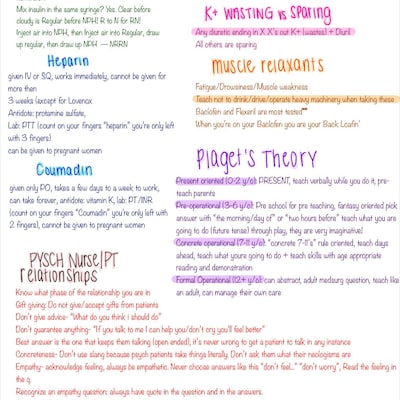 Mix insulin in the same syringe? Yes. Clear before
cloudy is Regular before NPH! R to N for RN!
Inject air into NPH, then Inject air into Regular, draw
up regular, then draw up NPH — NRRN
Heparin
given IV or SQ, works immediately, cannot be given for
more then
3 weeks (except for Lovenox
Antidote: protamine sulfate,
Lab: PTT (count on your fingers "heparin" you're only left
with 3 fingers)
can be given to pregnant women
Coumadin
given only PO, takes a few days to a week to work,
can take forever, antidote: vitamin K, lab: PT/INR
(count on your fingers "Coumadin" you're only left with
2 fingers), cannot be given to pregnant women
K+ WASTING vs SPARING
Any diuretic ending in X X's out K+ (wastes) + Diuril
All others are sparing
MUSCLE RELAXANTS
Fatigue/Drowsiness/Muscle weakness
Teach not to drink/drive/operate heavy machinery when taking these
Baclofen and Flexeril are most tested**
When you're on your Baclofen you are Back Loafin'
Piaget's Theory
Present oriented (0-2 y/o): PRESENT, teach verbally while you do it, pre-
teach parents
Pre-operational (3-6 y/o): Pre school for pre teaching, fantasy oriented pick
answer with "the morning/day of" or "two hours before" teach what you are
going to do (future tense) through play, they are very imaginative!
Concrete operational (7-11 y/o): "concrete 7-11's" rule oriented, teach days
ahead, teach what youre going to do + teach skills with age appropriate
reading and demonstration
Formal Operational (12+ y/o): can abstract, adult medsurg question, teach like
an adult, can manage their own care
PYSCH Nurse/PT
relationships
Know what phase of the relationship you are in
Gift giving: Do not give/accept gifts from patients
Don't give advice- "What do you think i should do"
Don't guarantee anything- "If you talk to me I can help you/don't cry you'll feel better"
Best answer is the one that keeps them talking (open ended), it's never wrong to get a patient to talk in any instance
Concreteness- Don't use slang because psych patients take things literally. Don't ask them what their neologisms are
Empathy- acknowledge feeling, always be empathetic. Never choose answers like this "don't feel..." "don't worry", Read the feeling in
the q
Recognize an empathy question: always have quote in the question and in the answers.